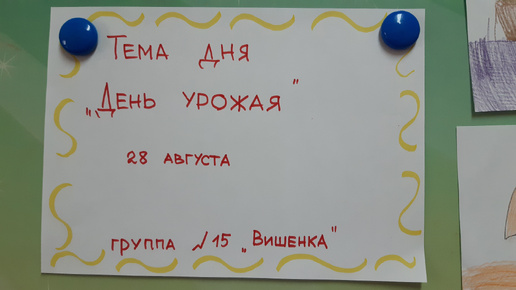 Тема дня
„День урожая"
28 августа
группа №15 „Вишенка"